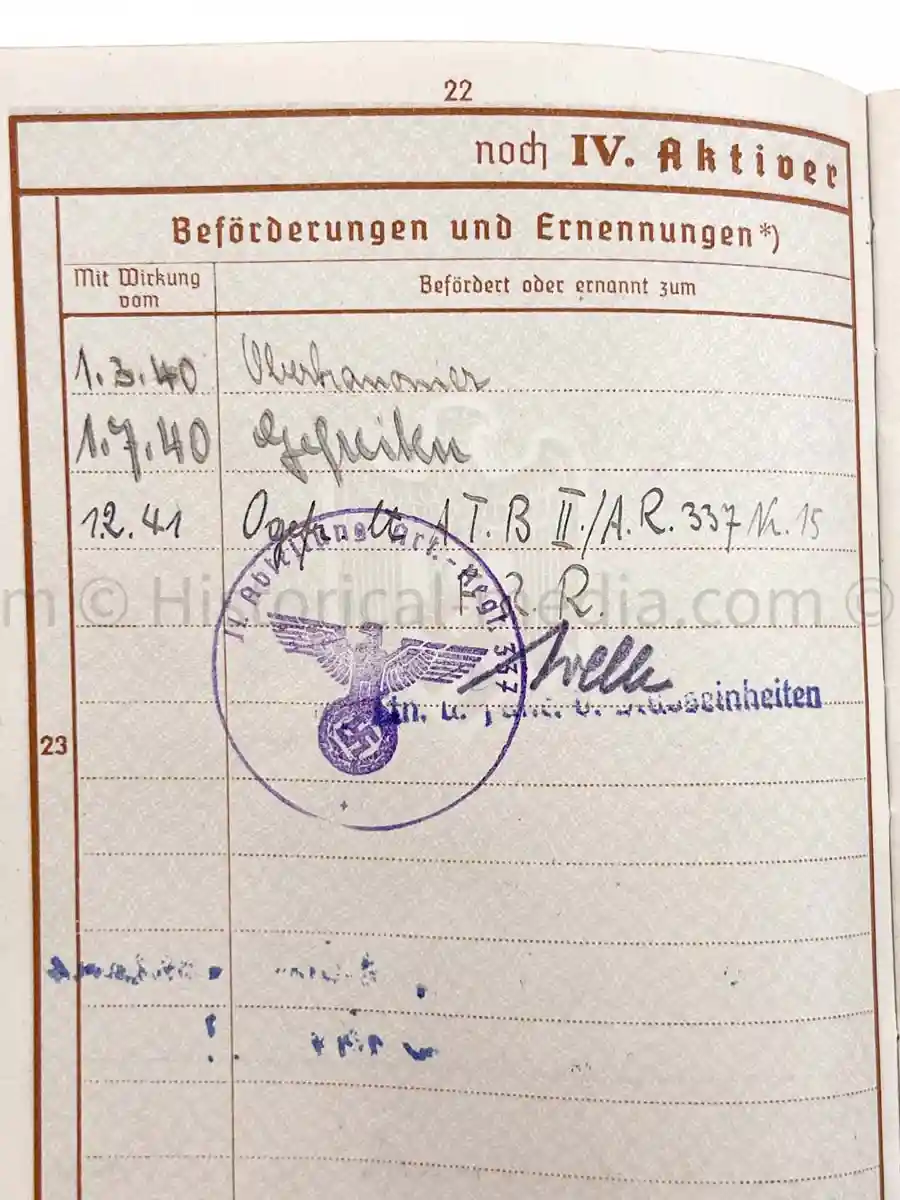 22
noch IV. Aktiver
Beförderungen und Ernennungen*)
Mit Wirkung vom
Befördert oder ernannt zum
1.3.40 Oberkanonier
1.7.40 Gefreiten
1.2.41 Ogefr. A T. B II./A.R. 337 Nr. 15
II. Abteilung Art.-Regt. 337
R.
© Historical-Media.com ©
Ltn. u.
einheiten
23